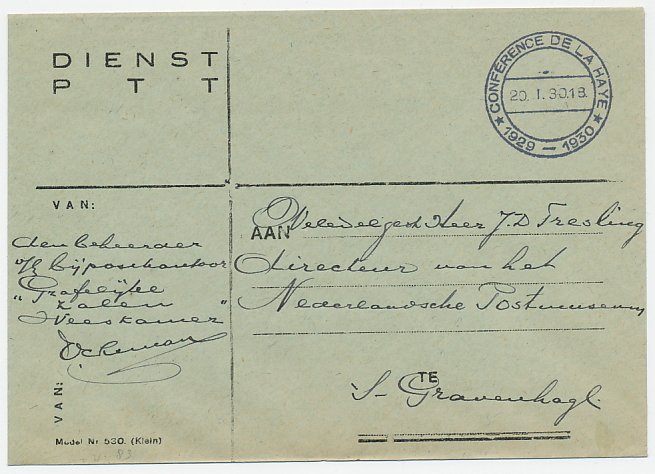 DIENST
PTT
CONFÉRENCE DE LA HAYE
20. I. 30.18.
★ 1929 — 1930 ★
VAN:
den beheerder
v/h bijpostkantoor
"Grafelijke
zalen
Weeskamer"
AAN
Weledelgest Heer J.D. Tresling
directeur van het
Nederlandsche Postmuseum
TE
's-Gravenhage.
VAN:
Model Nr 530. (Klein)